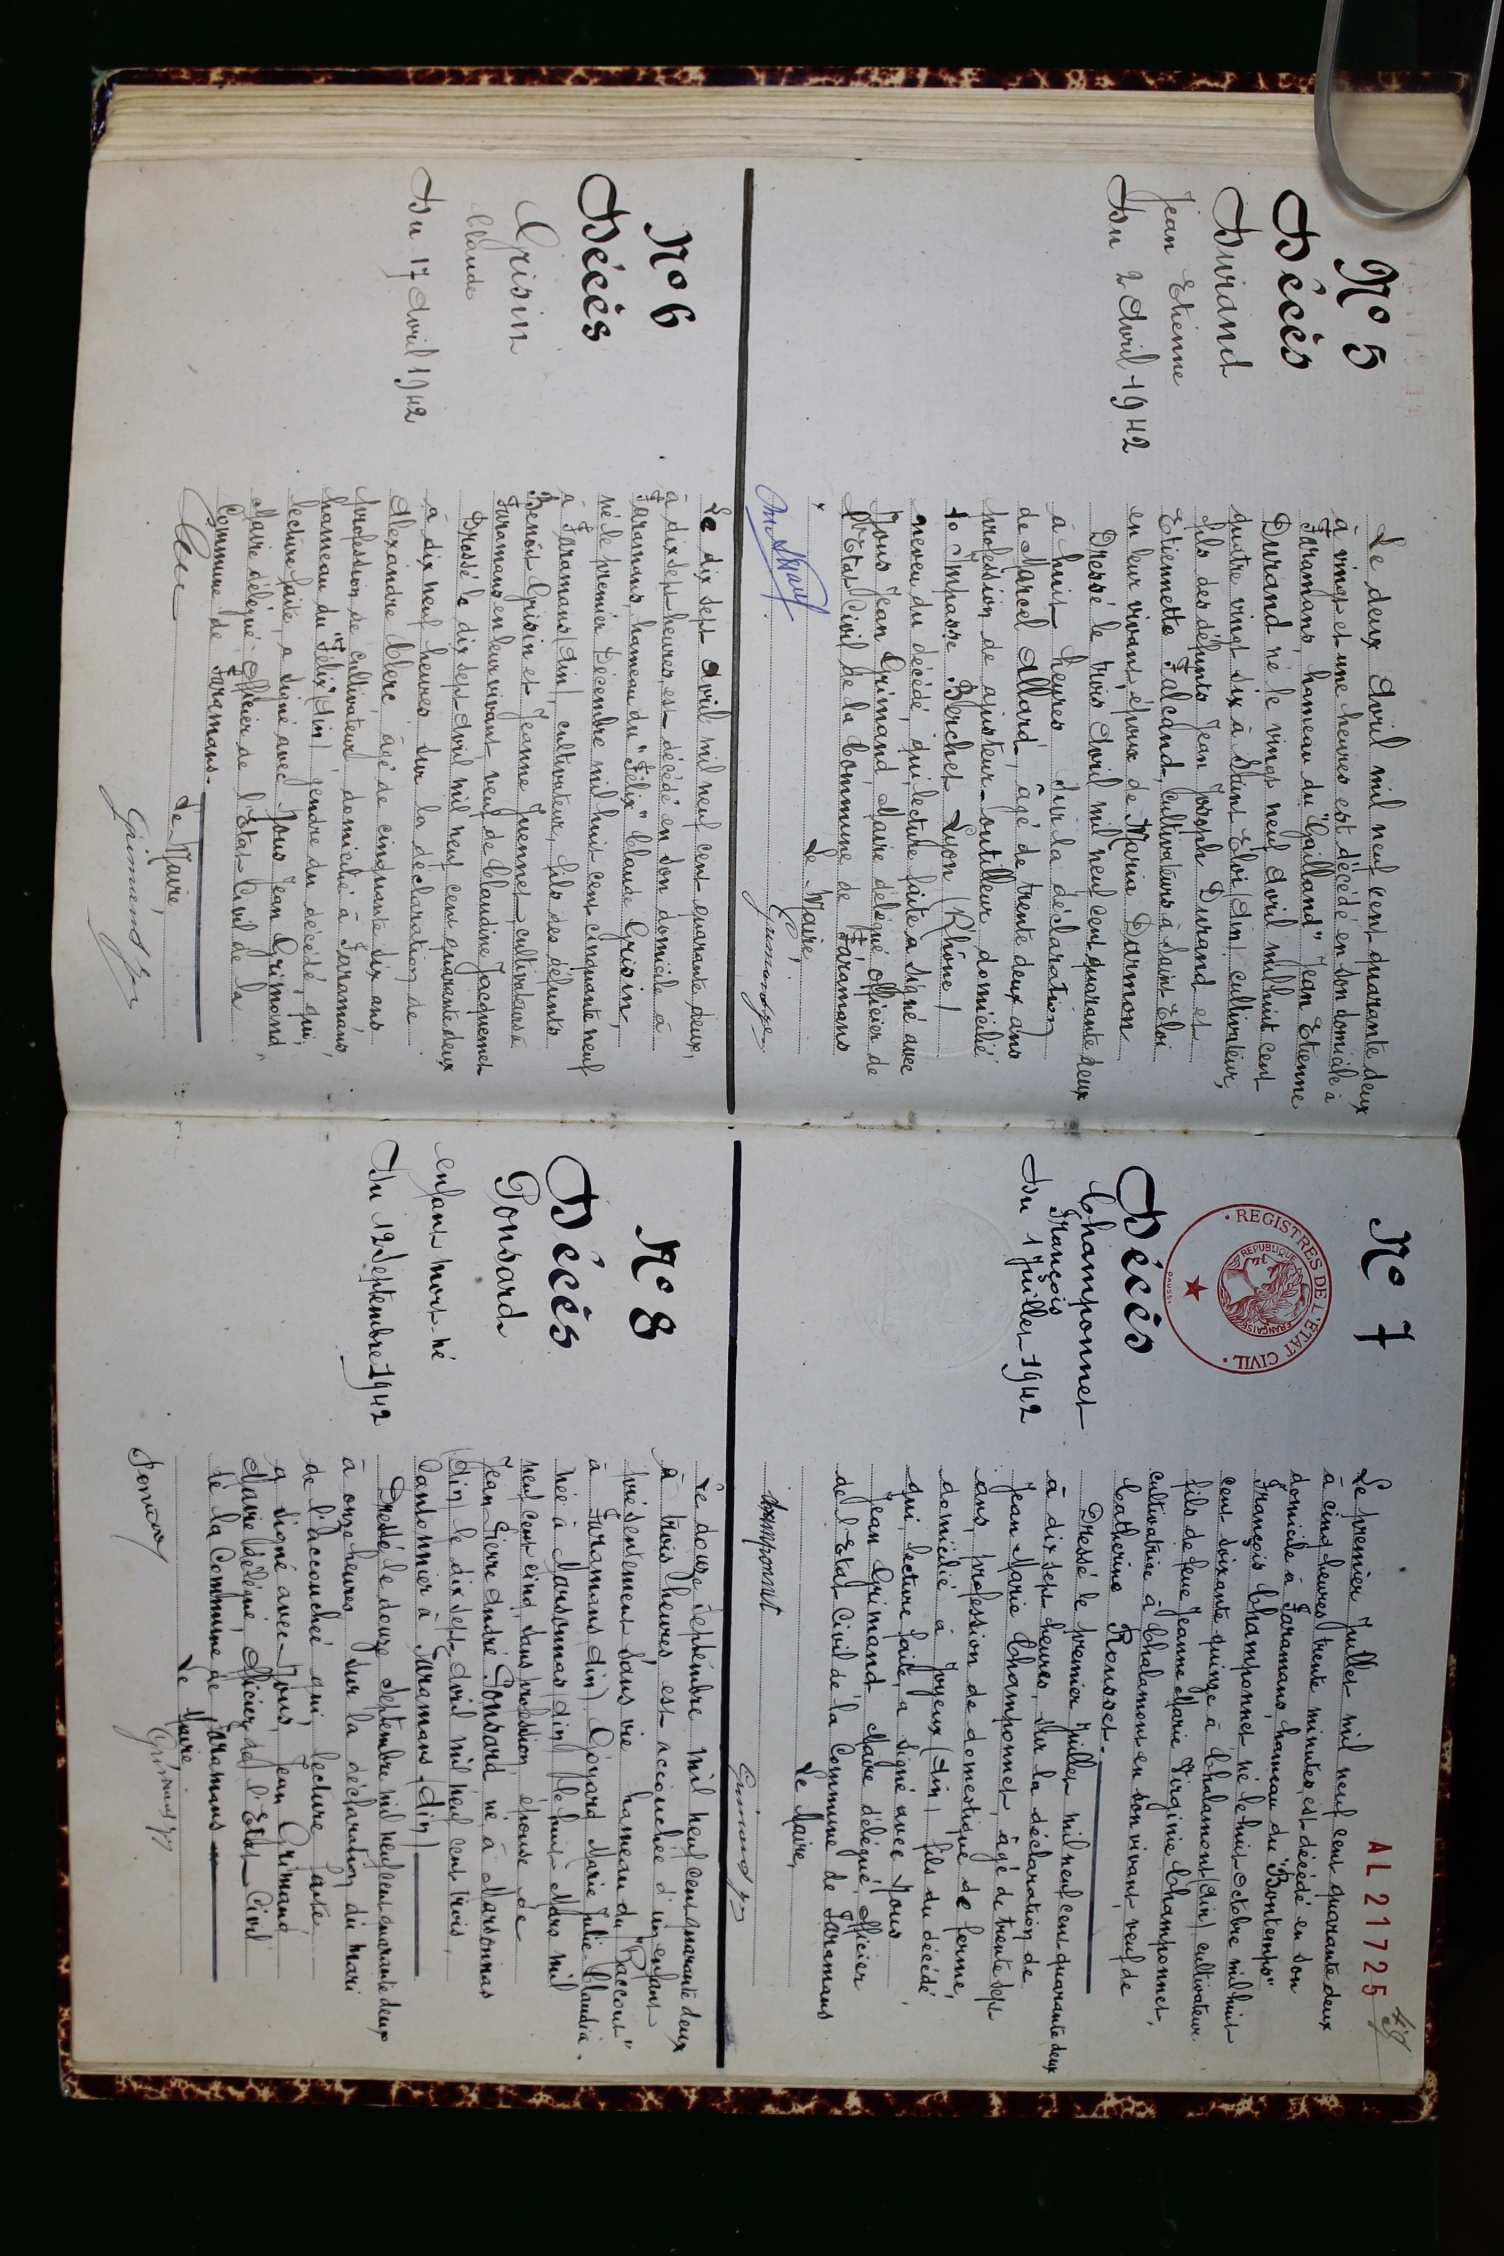 N° 5
Décès
Durand
Jean Etienne
Du 2 Avril 1942
Le deux Avril mil neuf cent quarante deux
à vingt et une heures est décédé en son domicile à
Faramans, hameau du "Gailland" Jean Etienne
Durand né le vingt neuf Avril mil huit cent
quatre vingt six à Saint Eloi (Ain) cultivateur,
fils des défunts Jean Joseph Durand et
Etiennette Falcand, cultivateurs à Saint Eloi
en leur vivant, époux de Maria Darmon
Dressé le trois Avril mil neuf cent quarante deux
à huit heures sur la déclaration
de Marcel Allard, âgé de trente deux ans
profession de ajusteur-outilleur domicilié
10 Impasse Berchet Lyon (Rhône)
neveu du décédé, qui, lecture faite a signé avec
Nous Jean Grimand, Maire délégué officier de
l'Etat Civil de la Commune de Faramans
Le Maire,
Grimand
N° 6
Décès
Grisin
Claude
Du 17 Avril 1942
Le dix sept Avril mil neuf cent quarante deux,
à dix sept heures est décédé en son domicile à
Faramans, hameau du "Félix" Claude Grisin,
né le premier Décembre mil huit cent cinquante neuf
à Faramans (Ain) cultivateur, fils des défunts
Benoît Grisin et Jeanne Juennet, cultivateurs à
Faramans en leur vivant, veuf de Claudine Jacquemet
Dressé le dix sept Avril mil neuf cent quarante deux
à dix neuf heures sur la déclaration de
Alexandre Clerc, âgé de cinquante dix ans
profession de cultivateur, domicilié à Faramans,
hameau du "Félix" (Ain) gendre du décédé, qui,
lecture faite, a signé avec Nous Jean Grimand,
Maire délégué Officier de l'Etat Civil de la
Commune de Faramans.
Le Maire,
Clerc
Grimand
AL 21725
N° 7
REGISTRES DE L'ETAT CIVIL
REPUBLIQUE FRANÇAISE
Décès
Champonnet
François
Du 1 Juillet 1942
Le premier Juillet mil neuf cent quarante deux
à cinq heures trente minutes, est décédé en son
domicile à Faramans, hameau du "Bontemps"
François Champonnet né le huit Octobre mil huit
cent soixante quinze à Chalamont (Ain) cultivateur.
fils de feue Jeanne Marie Virginie Champonnet,
cultivatrice à Chalamont en son vivant, veuf de
Catherine Rousset.
Dressé le premier Juillet mil neuf cent quarante deux
à dix sept heures, sur la déclaration de
Jean Marie Champonnet, âgé de trente sept
ans, profession de domestique de ferme,
domicilié à Joyeux (Ain) fils du décédé
qui, lecture faite, a signé avec Nous
Jean Grimand Maire délégué, officier
de l'Etat Civil de la Commune de Faramans
Le Maire,
Champonnet
Grimand
N° 8
Décès
Ponsard
enfant mort-né
Du 12 Septembre 1942
Le douze Septembre mil neuf cent quarante deux
à trois heures est accouchée d'un enfant
présentement sans vie hameau du "Raccourt"
à Faramans (Ain) Goyard Marie Julie Claudia.
née à Marsonnas (Ain) le huit Mars mil
neuf cent cinq, sans profession, épouse de
Jean Pierre André Ponsard né à Marsonnas
(Ain) le dix sept Avril mil neuf cent trois,
Cantonnier à Faramans (Ain)
Dressé le douze Septembre mil neuf cent quarante deux
à onze heures sur la déclaration du mari
de l'accouchée qui, lecture faite
a signé avec Nous, Jean Grimand
Maire délégué, Officier de l'Etat Civil
de la Commune de Faramans
Le Maire
Ponsard
Grimand